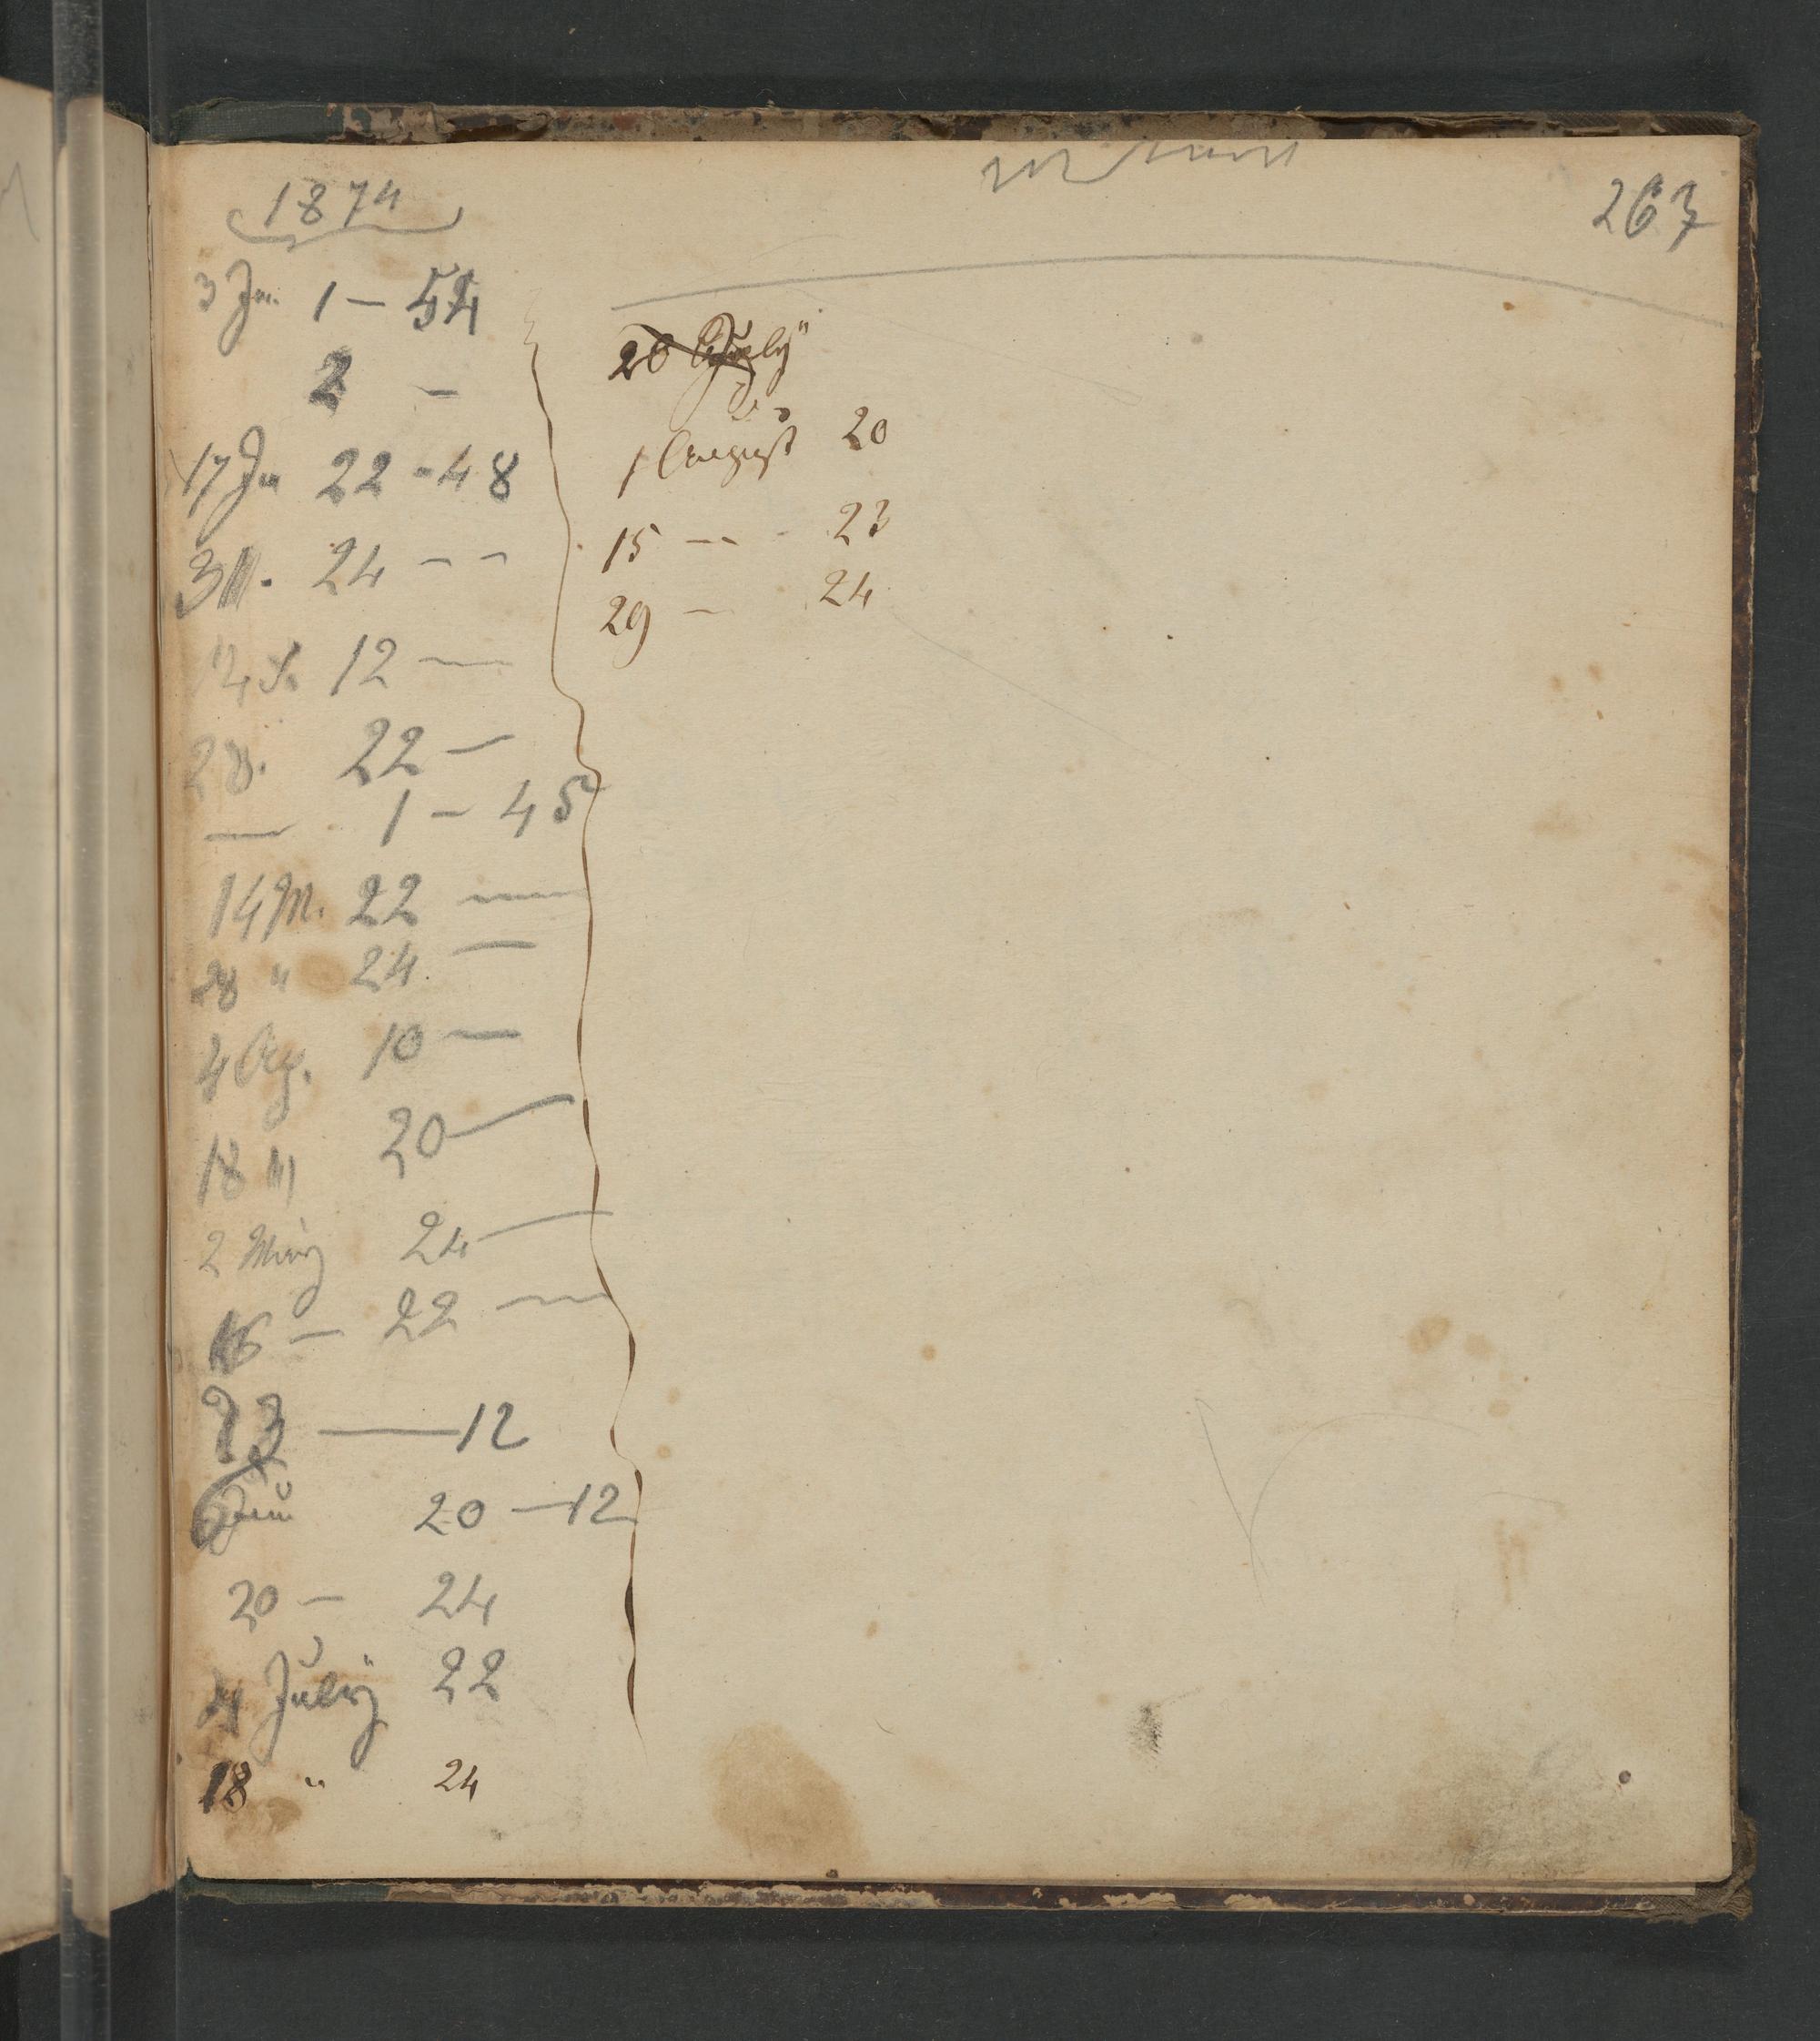 263
1874
3 Jn. 1 — 54
2 —
17 Jn 22 - 48
31 . 24 - -
14 F. 12 —
28. 22 —
— 1 — 45
14 M. 22 —
28 " 24 —
4 Ap. 10 —
18 " 20 —
2 May 24 —
16 — 22 —
23 — 12
6 Juni 20 — 12
20 — 24
4 Julÿ 22
18 " 24
20 Julÿ
1 August 20
15 — - 23
29 — 24